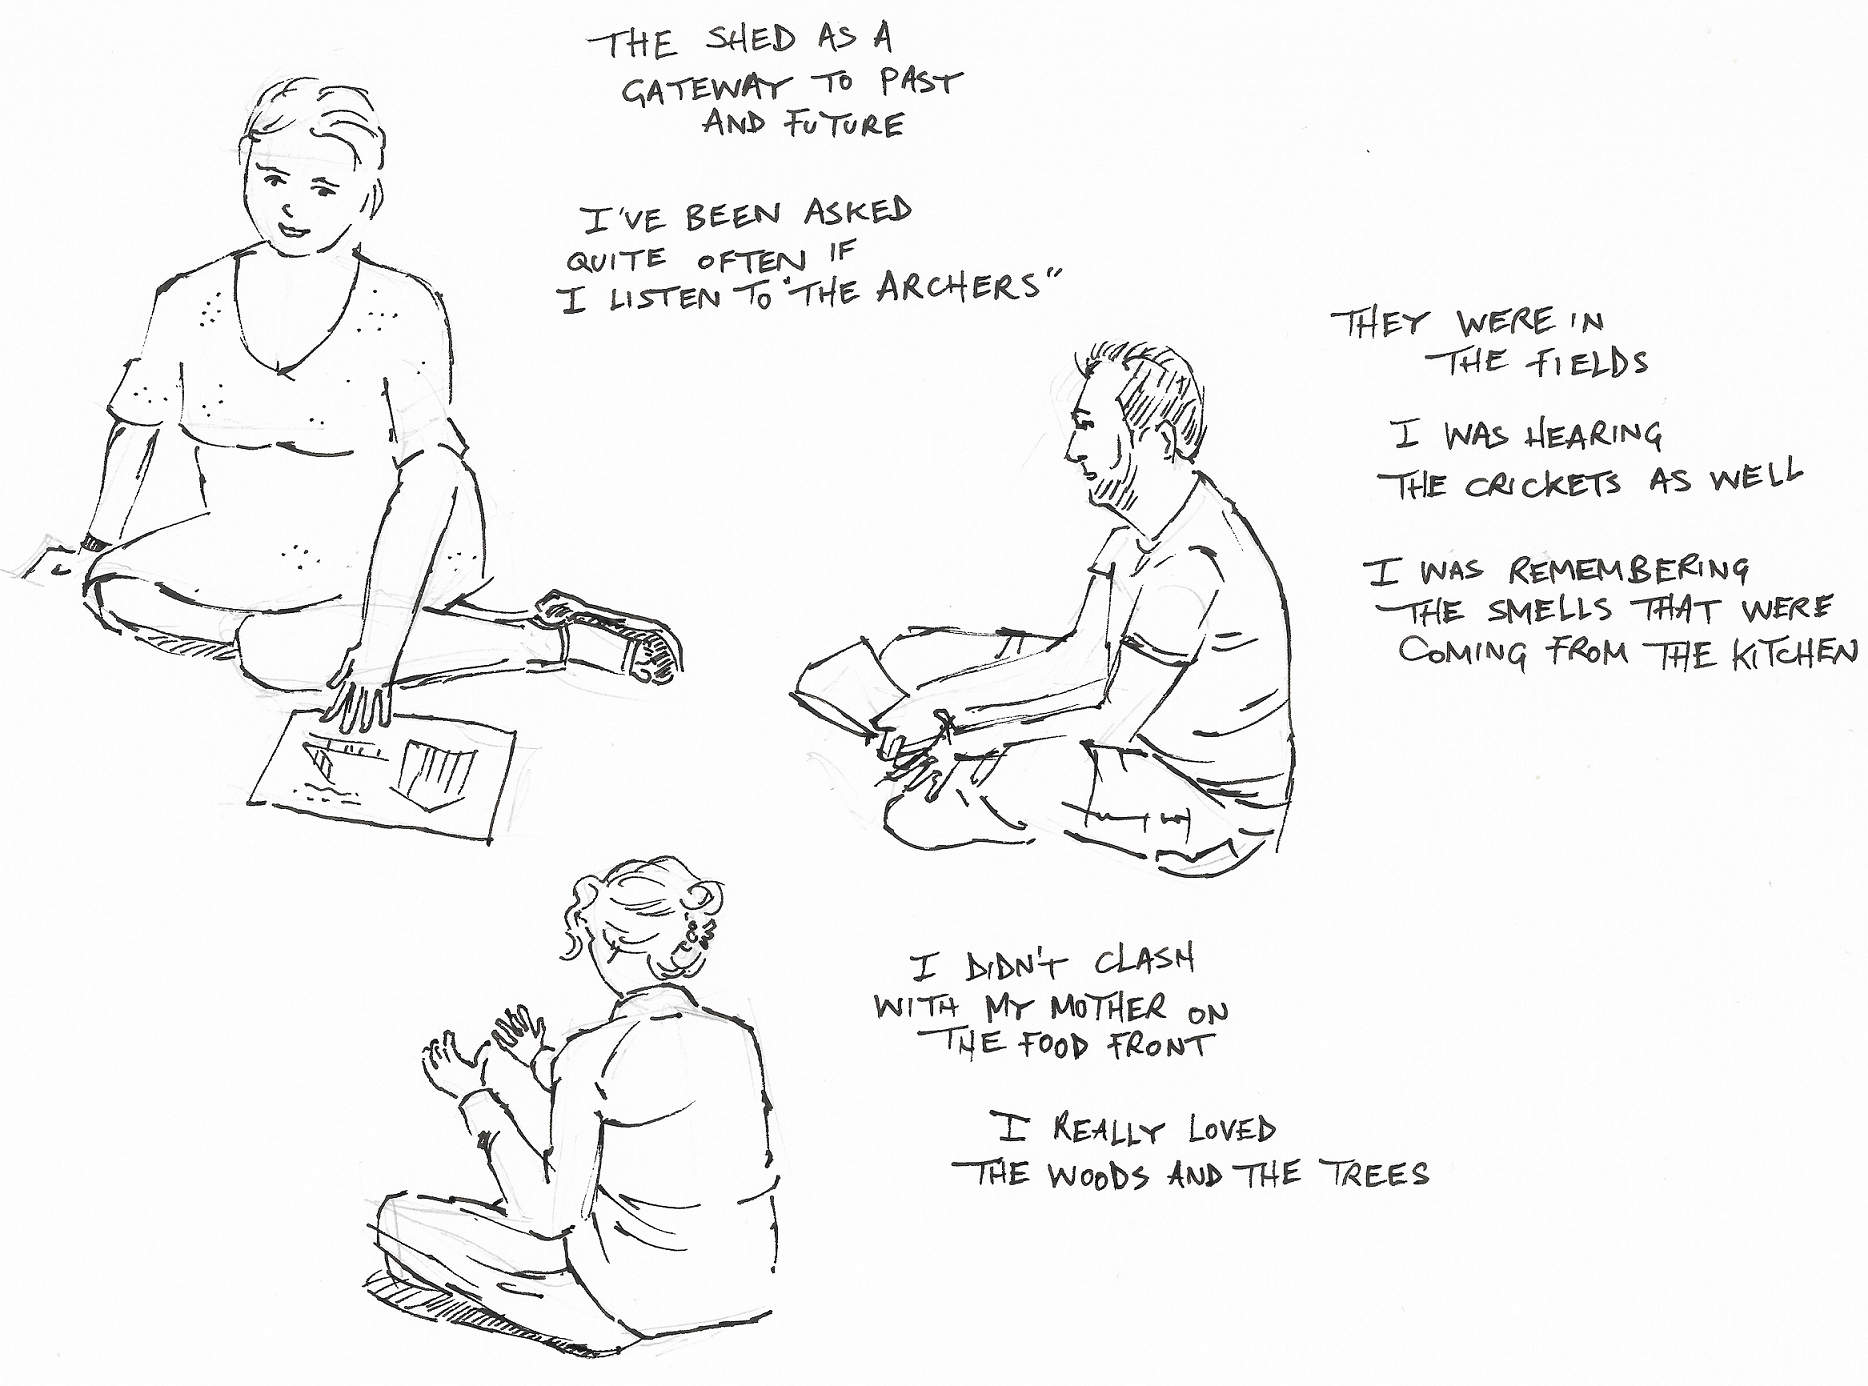 THE SHED AS A
GATEWAY TO PAST
AND FUTURE
I'VE BEEN ASKED
QUITE OFTEN IF
I LISTEN TO "THE ARCHERS"
THEY WERE IN
THE FIELDS
I WAS HEARING
THE CRICKETS AS WELL
I WAS REMEMBERING
THE SMELLS THAT WERE
COMING FROM THE KITCHEN
I DIDN'T CLASH
WITH MY MOTHER ON
THE FOOD FRONT
I REALLY LOVED
THE WOODS AND THE TREES